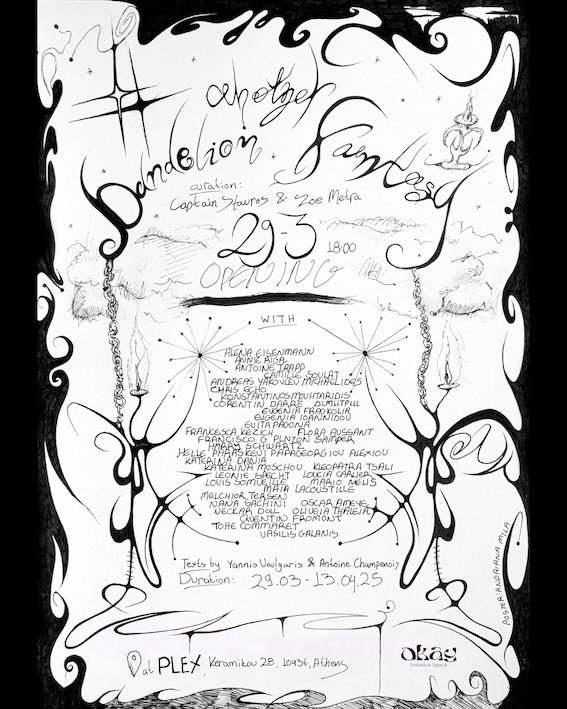 another
Dandelion Fantasy
curation:
Captain Stavros & Zoe Metra
29-3 18:00
OPENING
WITH
ALENA EISENMANN
ANNIE RIGA
ANTOINE TRAPP
CAMILLE SOULAT
ANDREAS YAKOVLEV MICHAELIDES
CHRIS ECHO
KONSTANTINOS MOUHTARIDIS
CORENTIN DARRE
EVGENIA FRAGKOULR
EVGENIA IOANNIDOU
EVITA PAGONA
FRANCESCA KEZICH FLORA AUSSANT
FRANCISCO G PINZON SAMPER
HARRY SCHWARTZ
HELLE PARASKEVI PAPAGEORGIOU ALEXIOU
KATERINA DANIA
KATERINA MOSCHOU KLEOPATRA TSALI
LEONIE SPECHT LOUCIA CARLIER
LOUIS SOMVEILLE MARIO NELIS
MAIA LACOUSTILLE
MELCHIOR TERSEN
NANA SACHINI OSCAR AMEYE
NECKAR DOLL OLIVEIA THALEIA
QUENTIN FROMONT
TOHE COMMARET
VASILIS GALANIS
Texts by Yannis Voulgaris & Antoine Champenois
Duration: 29.03 - 13.04.25
POSTER: ANDRIANA MILA
at PLEX, Keramikou 28, 10436, Athens
okay
Initiative Space